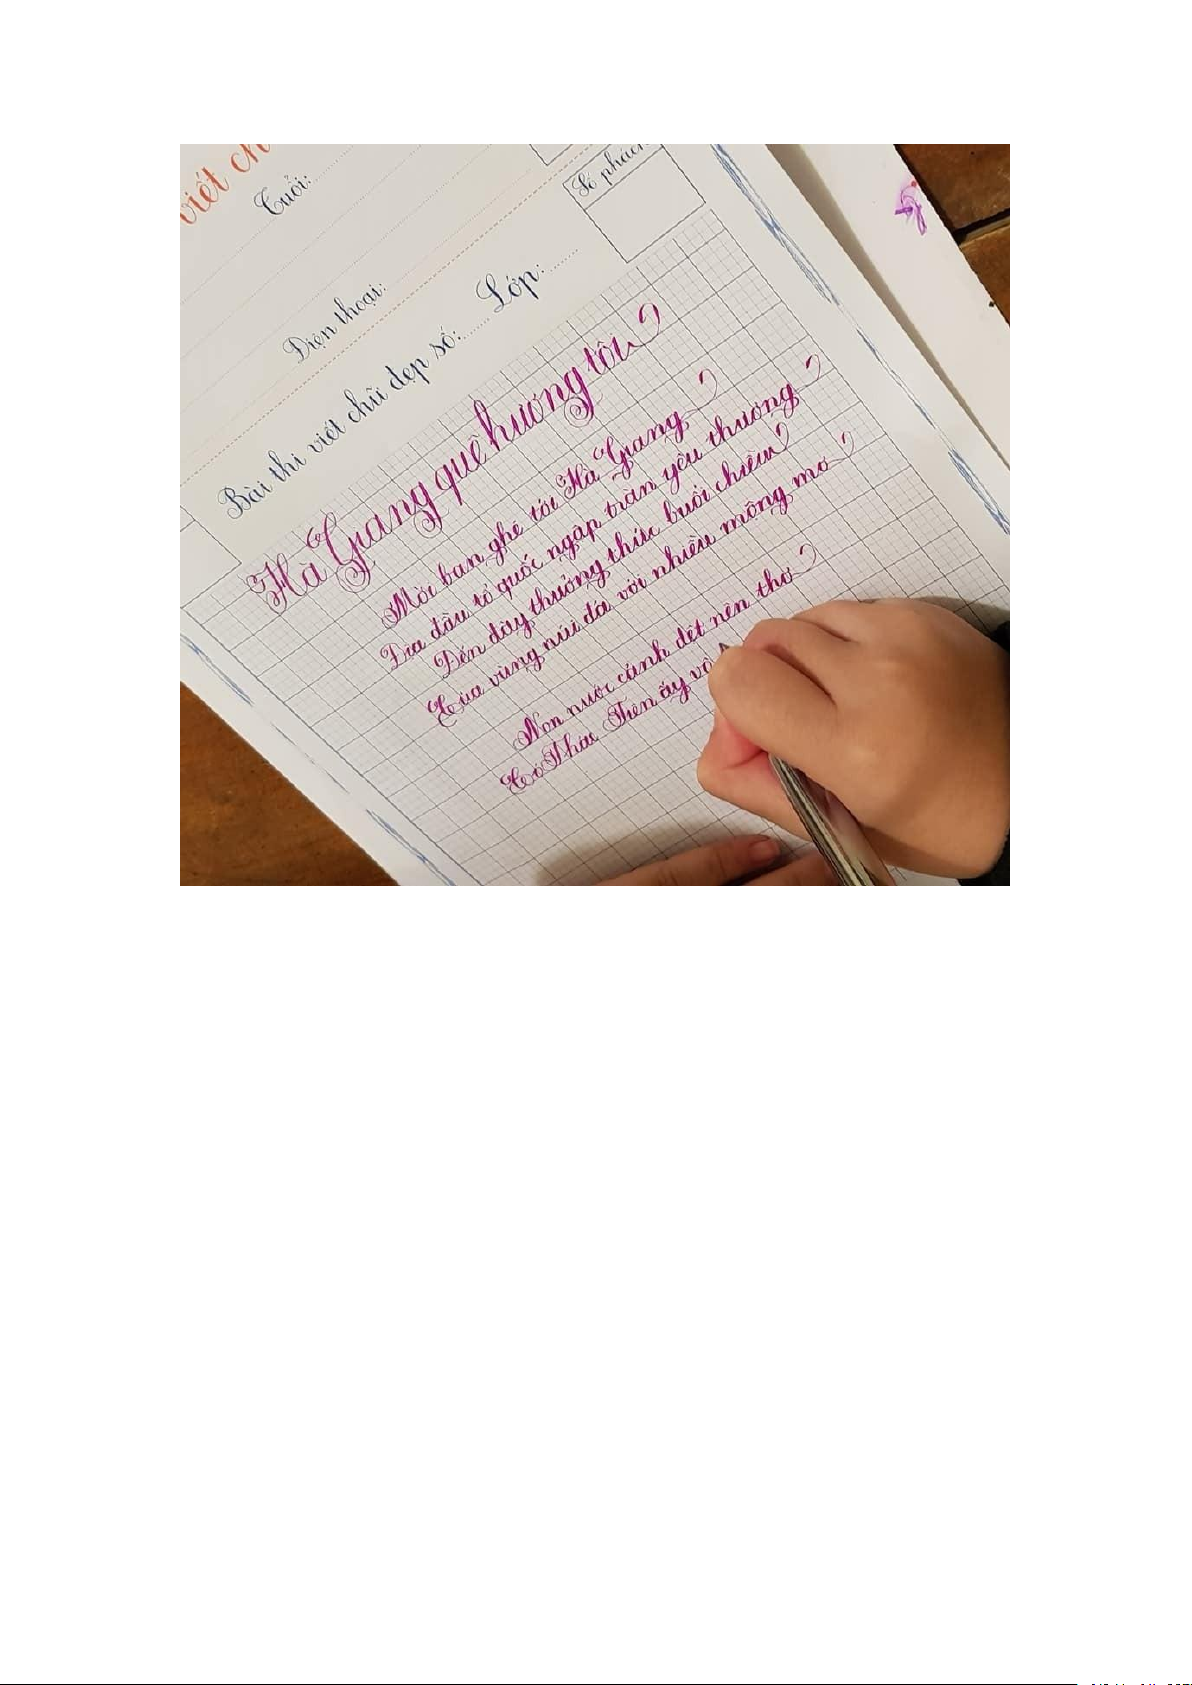 viết ch
Tuổi:
Số phách
Điện thoại:
Bài thi viết chữ đẹp số:........Lớp:........
Hà Giang quê hương tôi
Mời bạn ghé tới Hà Giang
Địa đầu tổ quốc ngập tràn yêu thương
Đến đây thưởng thức buổi chiều
Của vùng núi đá với nhiều mộng mơ
Non nước cảnh dệt nên thơ
Cô Tiên ấy vô